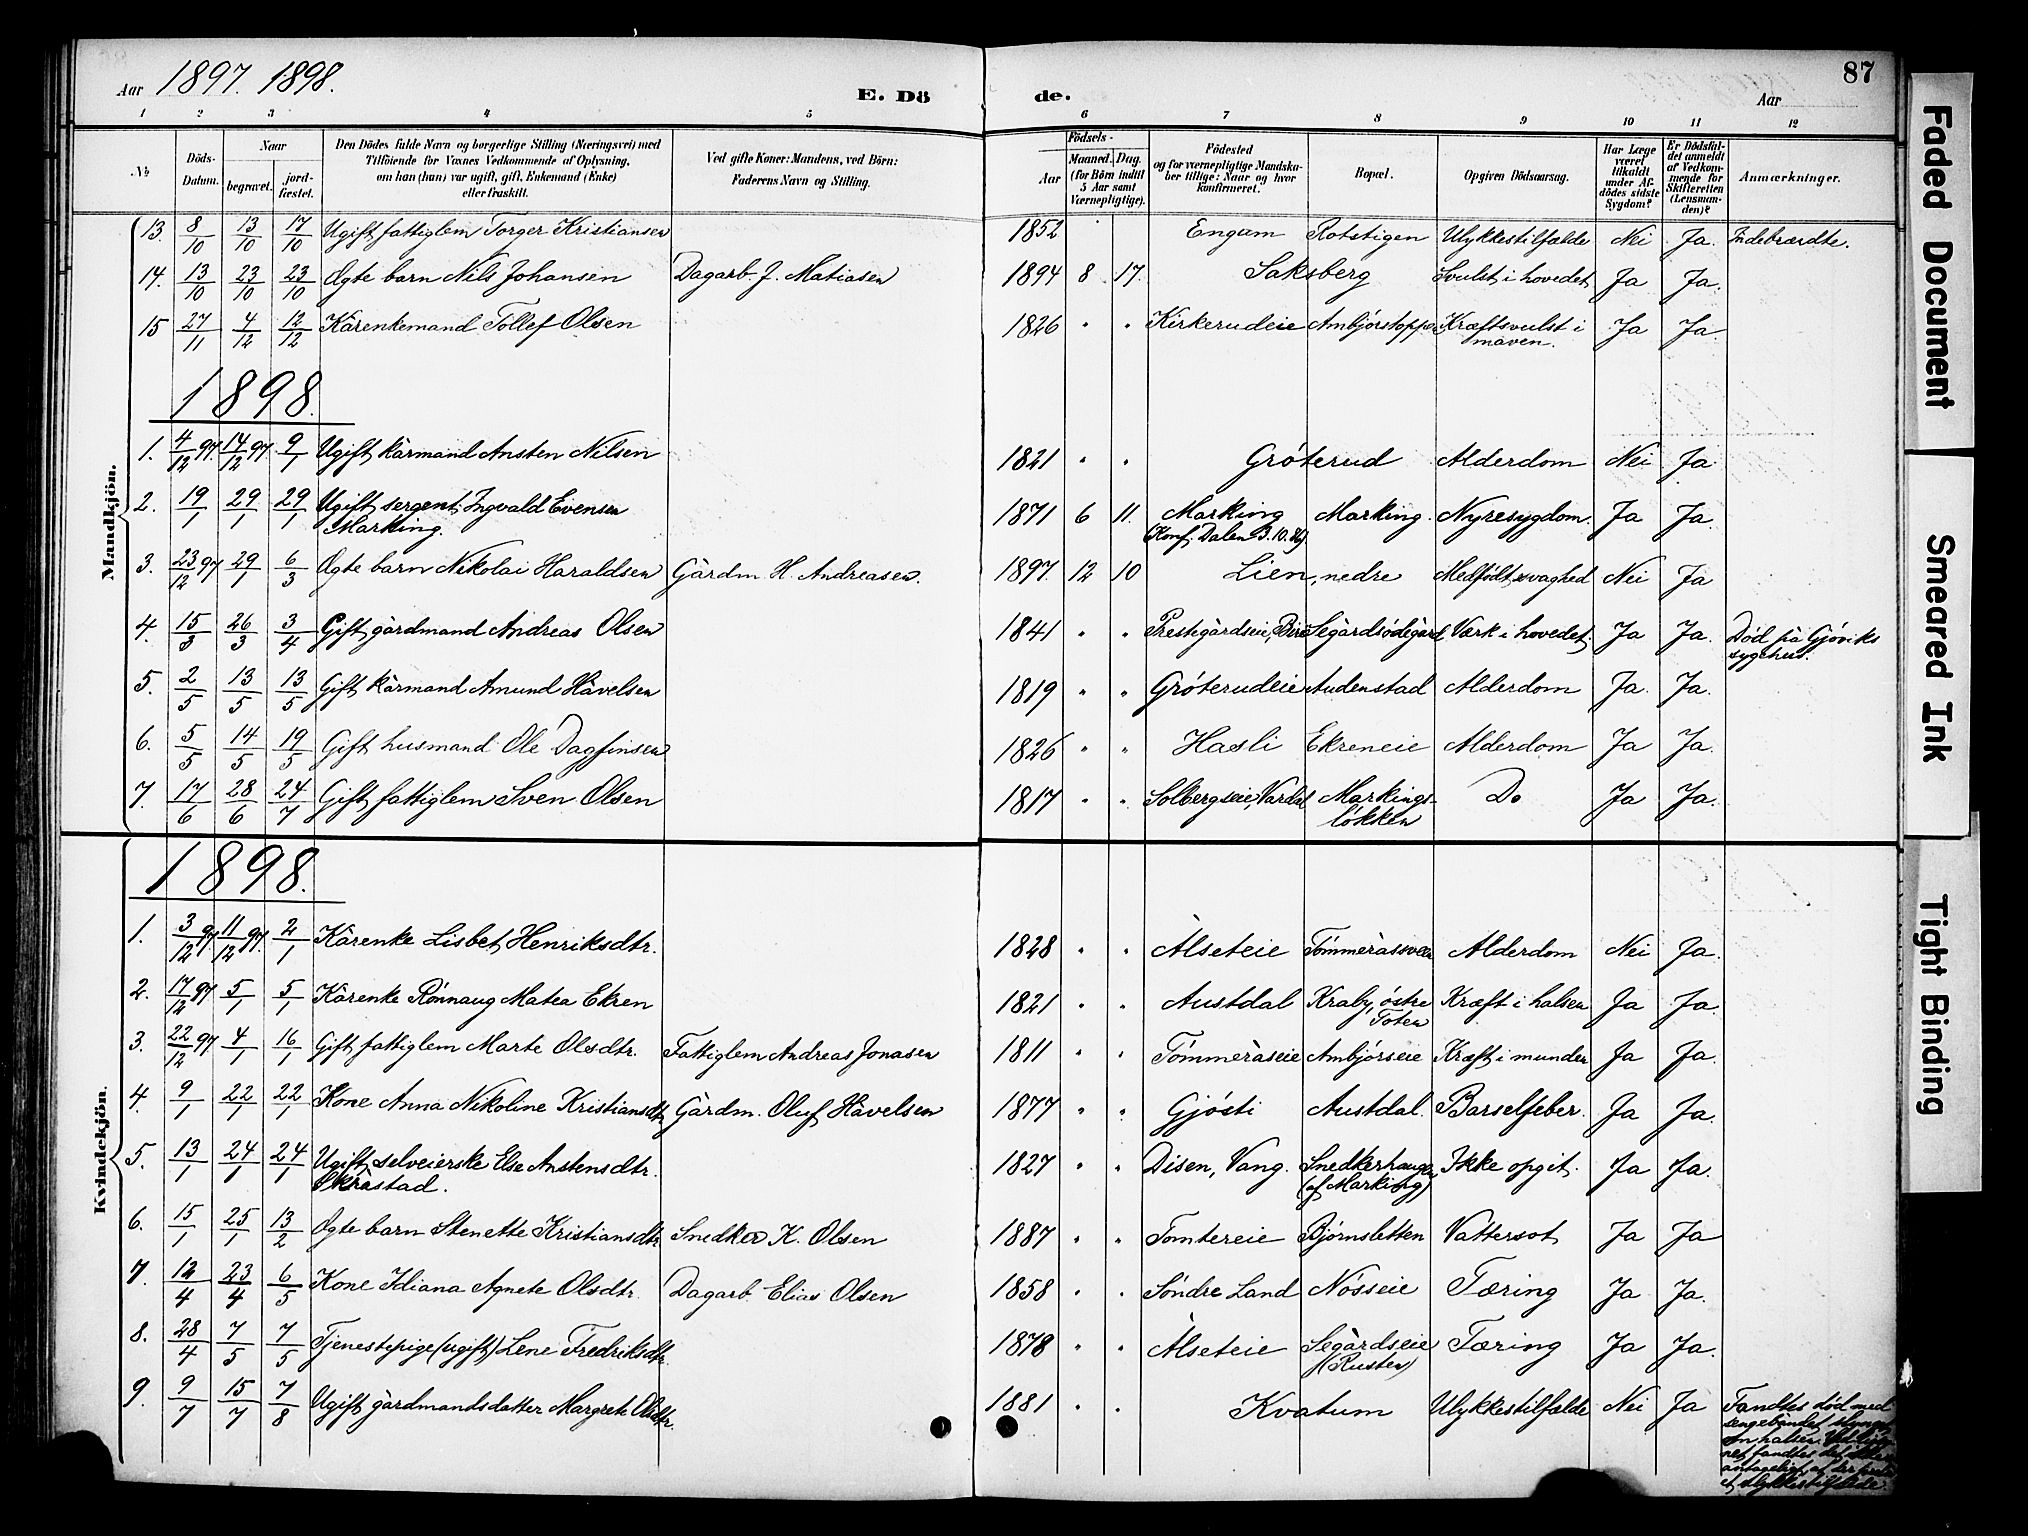 Aar 1897. 1898. E. Dö de. Aar 87
1 2 3 4 5 6 7 8 9 10 11 12
№ Döds-Datum. Naar begravet. jordfæstet. Den Dödes fulde Navn og borgerlige Stilling (Næringsvei) med Tilföiende for Voxnes Vedkommende af Oplysning, om han (hun) var ugift, gift, Enkemand (Enke) eller fraskilt. Ved gifte Koner: Mandens, ved Börn: Faderens Navn og Stilling. Födsels- Aar Maaned. Dag. (for Börn indtil 5 Aar samt Værnepligtige). Födested og for værnepligtige Mandskaber tillige: Naar og hvor konfirmeret. Bopæl. Opgiven Dödsaarsag. Har Læge været tilkaldt under Afdödes sidste Sygdom? Er Dödsfaldet anmeldt af Vedkommende for Skifteretten (Lensmanden)? Anmærkninger.
Mandkjön.
13. 8/10 13/10 17/10 Ugift fattiglem Torger Kristiansen 1852 Engum Rotstigen Ulykkestilfælde Nei Ja. Indebrændte.
14. 13/10 23/10 23/10 Ægte barn Nils Johansen Dagarb. J. Matiasen 1894 8 17. Saksberg Svulst i hovedet Ja Ja.
15 27/11 4/12 12/12 Kårenkemand Tollef Olsen 1826 " " Kirkerudeie Ambjörstoppe Kræftsvulst i maven. Ja Ja.
1898.
1. 4/12 97. 14/12 97 9/1 Ugift kårmand Ansten Nilsen 1821 " " Gröterud Alderdom Nei Ja
2. 19/1 29/1 29/1 Ugift sergent Ingvald Evensen 1871 6 11. Marking Marking. Nyresygdom. Ja Ja.
Marking. (Konf. Dalen 3.10.86)
3. 23/12 97 29/1 6/3 Ægte barn Nikolai Haraldsen Gårdm. H. Andreasen. 1897. 12 10 Lien, nedre Medfödt svaghed Nei Ja
4. 15/3 26/3 3/4 Gift gårdmand Andreas Olsen 1841 " " Prestegårdseie, Biri Segårdsödegård Værk i hovedet. Ja Ja. Död på Gjöviks sygehus.
5. 2/5 13/5 13/5 Gift kårmand Amund Håvelsen 1819 " " Gröterudeie Audenstad Alderdom Ja. Ja.
6. 5/5 14/5 19/5 Gift husmand Ole Dagfinsen 1826 " " Hasli Ekreneie Alderdom Ja Ja.
7. 17/6 28/6 24/7 Gift fattiglem Sven Olsen 1817 " " Solbergseie, Vardal Markings- Do Ja Ja.
lökken
Kvindekjön.
1898.
1. 3/12 97. 11/12 97. 2/1 Kårenke Lisbet Henriksdtr. 1828 " " Ålseteie Tömmeråssveen Alderdom Nei Ja.
2. 17/12 97 5/1 5/1 Kårenke Rönnaug Matea Ekren 1821 " " Austdal Kraby, östre Kræft i halsen Ja Ja.
Toten
3. 22/12 97 4/1 16/1 Gift fattiglem Marte Olsdtr. Fattiglem Andreas Jonasen 1811 " " Tömmeråseie Ambjörseie Kræft i munden Ja Ja.
4. 9/1 22/1 22/1 Kone Anna Nikoline Kristiansdtr. Gårdm. Oluf Håvelsen 1877 " " Gjösti Austdal. Barselfeber. Ja Ja.
5. 13/1 24/1 24/1 Ugift selveierske Else Anstensdtr. 1827 " " Disen, Vang. Snedkerhaugen Ikke opgit. Ja Ja.
Skrastad. (af Marking)
6. 15/1 25/1 13/2 Ægte barn Stenette Kristiansdtr. Snedker K. Olsen 1887 " " Tomtereie Bjørnsletten Vattersot Ja Ja
7. 12/4 23/4 6/5 Kone Idiana Agnete Olsdtr. Dagarb. Elias Olsen 1858 " " Söndre Land Nösseie Tæring Ja Ja.
8. 28/4 7/5 7/5 Tjenestepige (ugift) Lene Fredriksdtr. 1878 " " Ålseteie Segårdseie Tæring Ja Ja.
(Rusten)
9. 9/7 15/7 7/8 Ugift gårdmandsdatter Margrete Olsdtr. 1881 " " Kvatum Ulykkestilfælde Nei Ja Fandtes död med
sengebåndet slynget
om halsen.
antageligt
et ulykkestilfælde.
Faded Document
Smeared Ink
Tight Binding